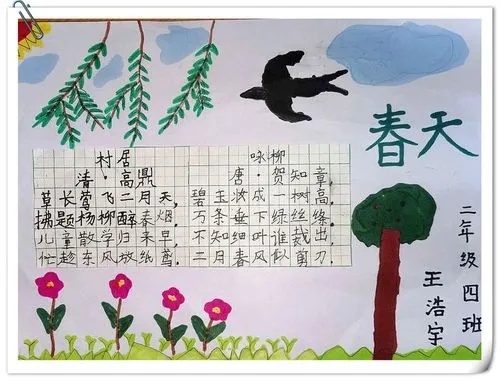 春天
村居
清·高鼎
草长莺飞二月天，
拂题杨柳醉春烟。
儿童散学归来早，
忙趁东风放纸鸢。
咏柳
唐·贺知章
碧玉妆成一树高，
万条垂下绿丝绦。
不知细叫谁裁出，
二月春风似剪刀。
二年级四班
王浩宇